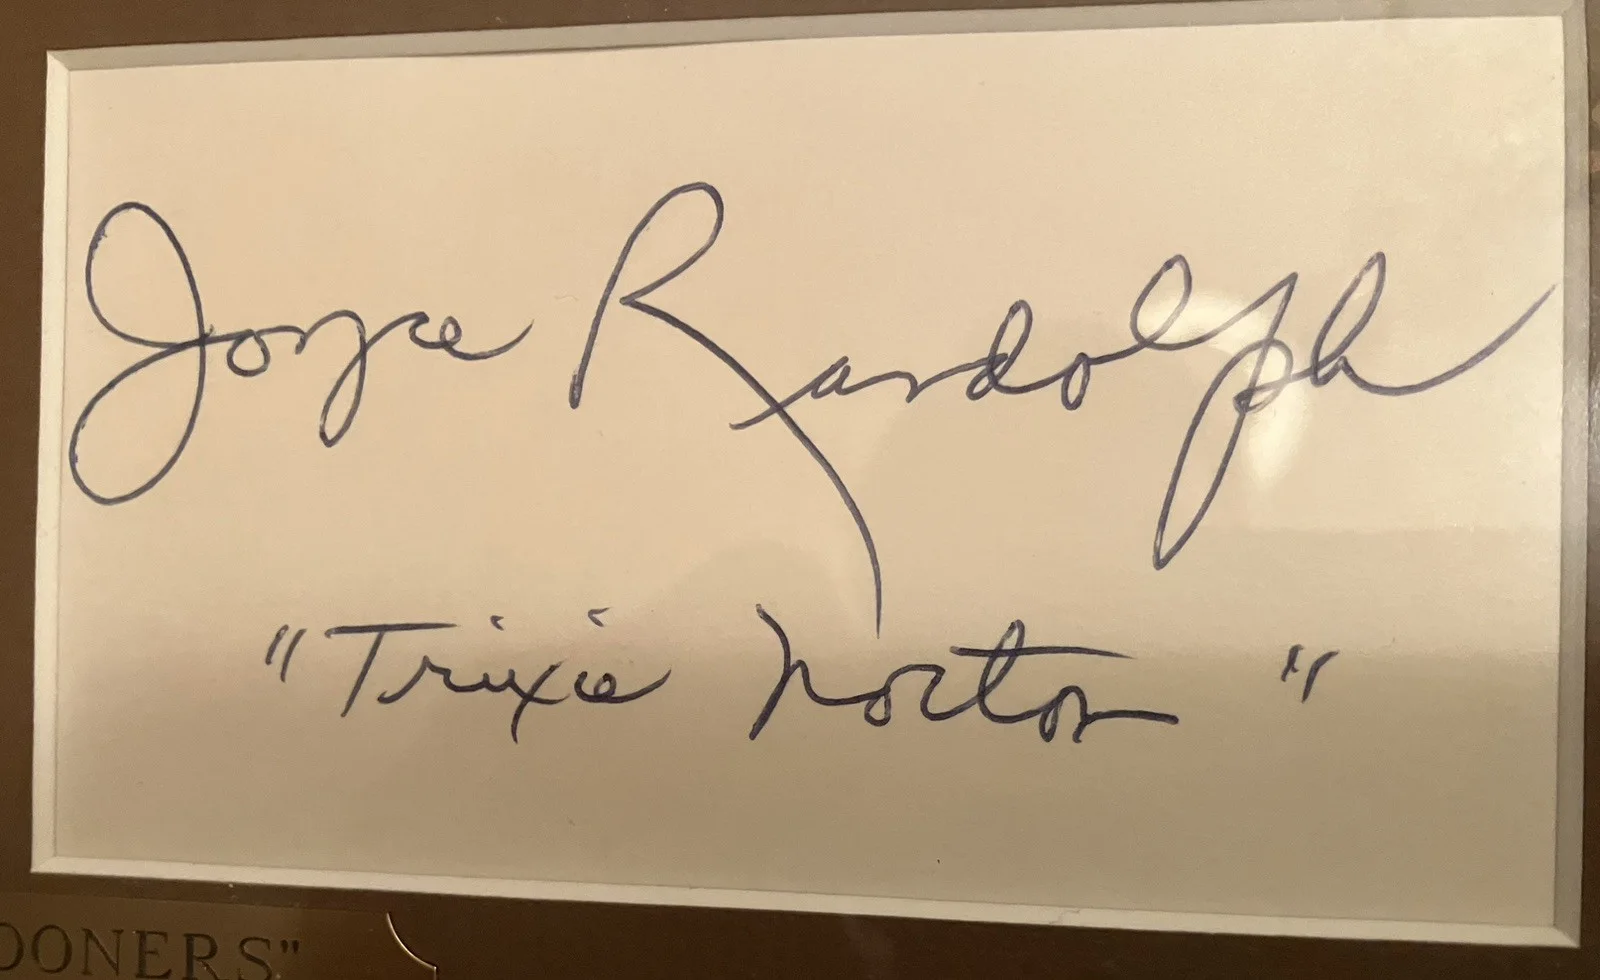 Joyce Randolph
"Trixie Norton"
OONERS"